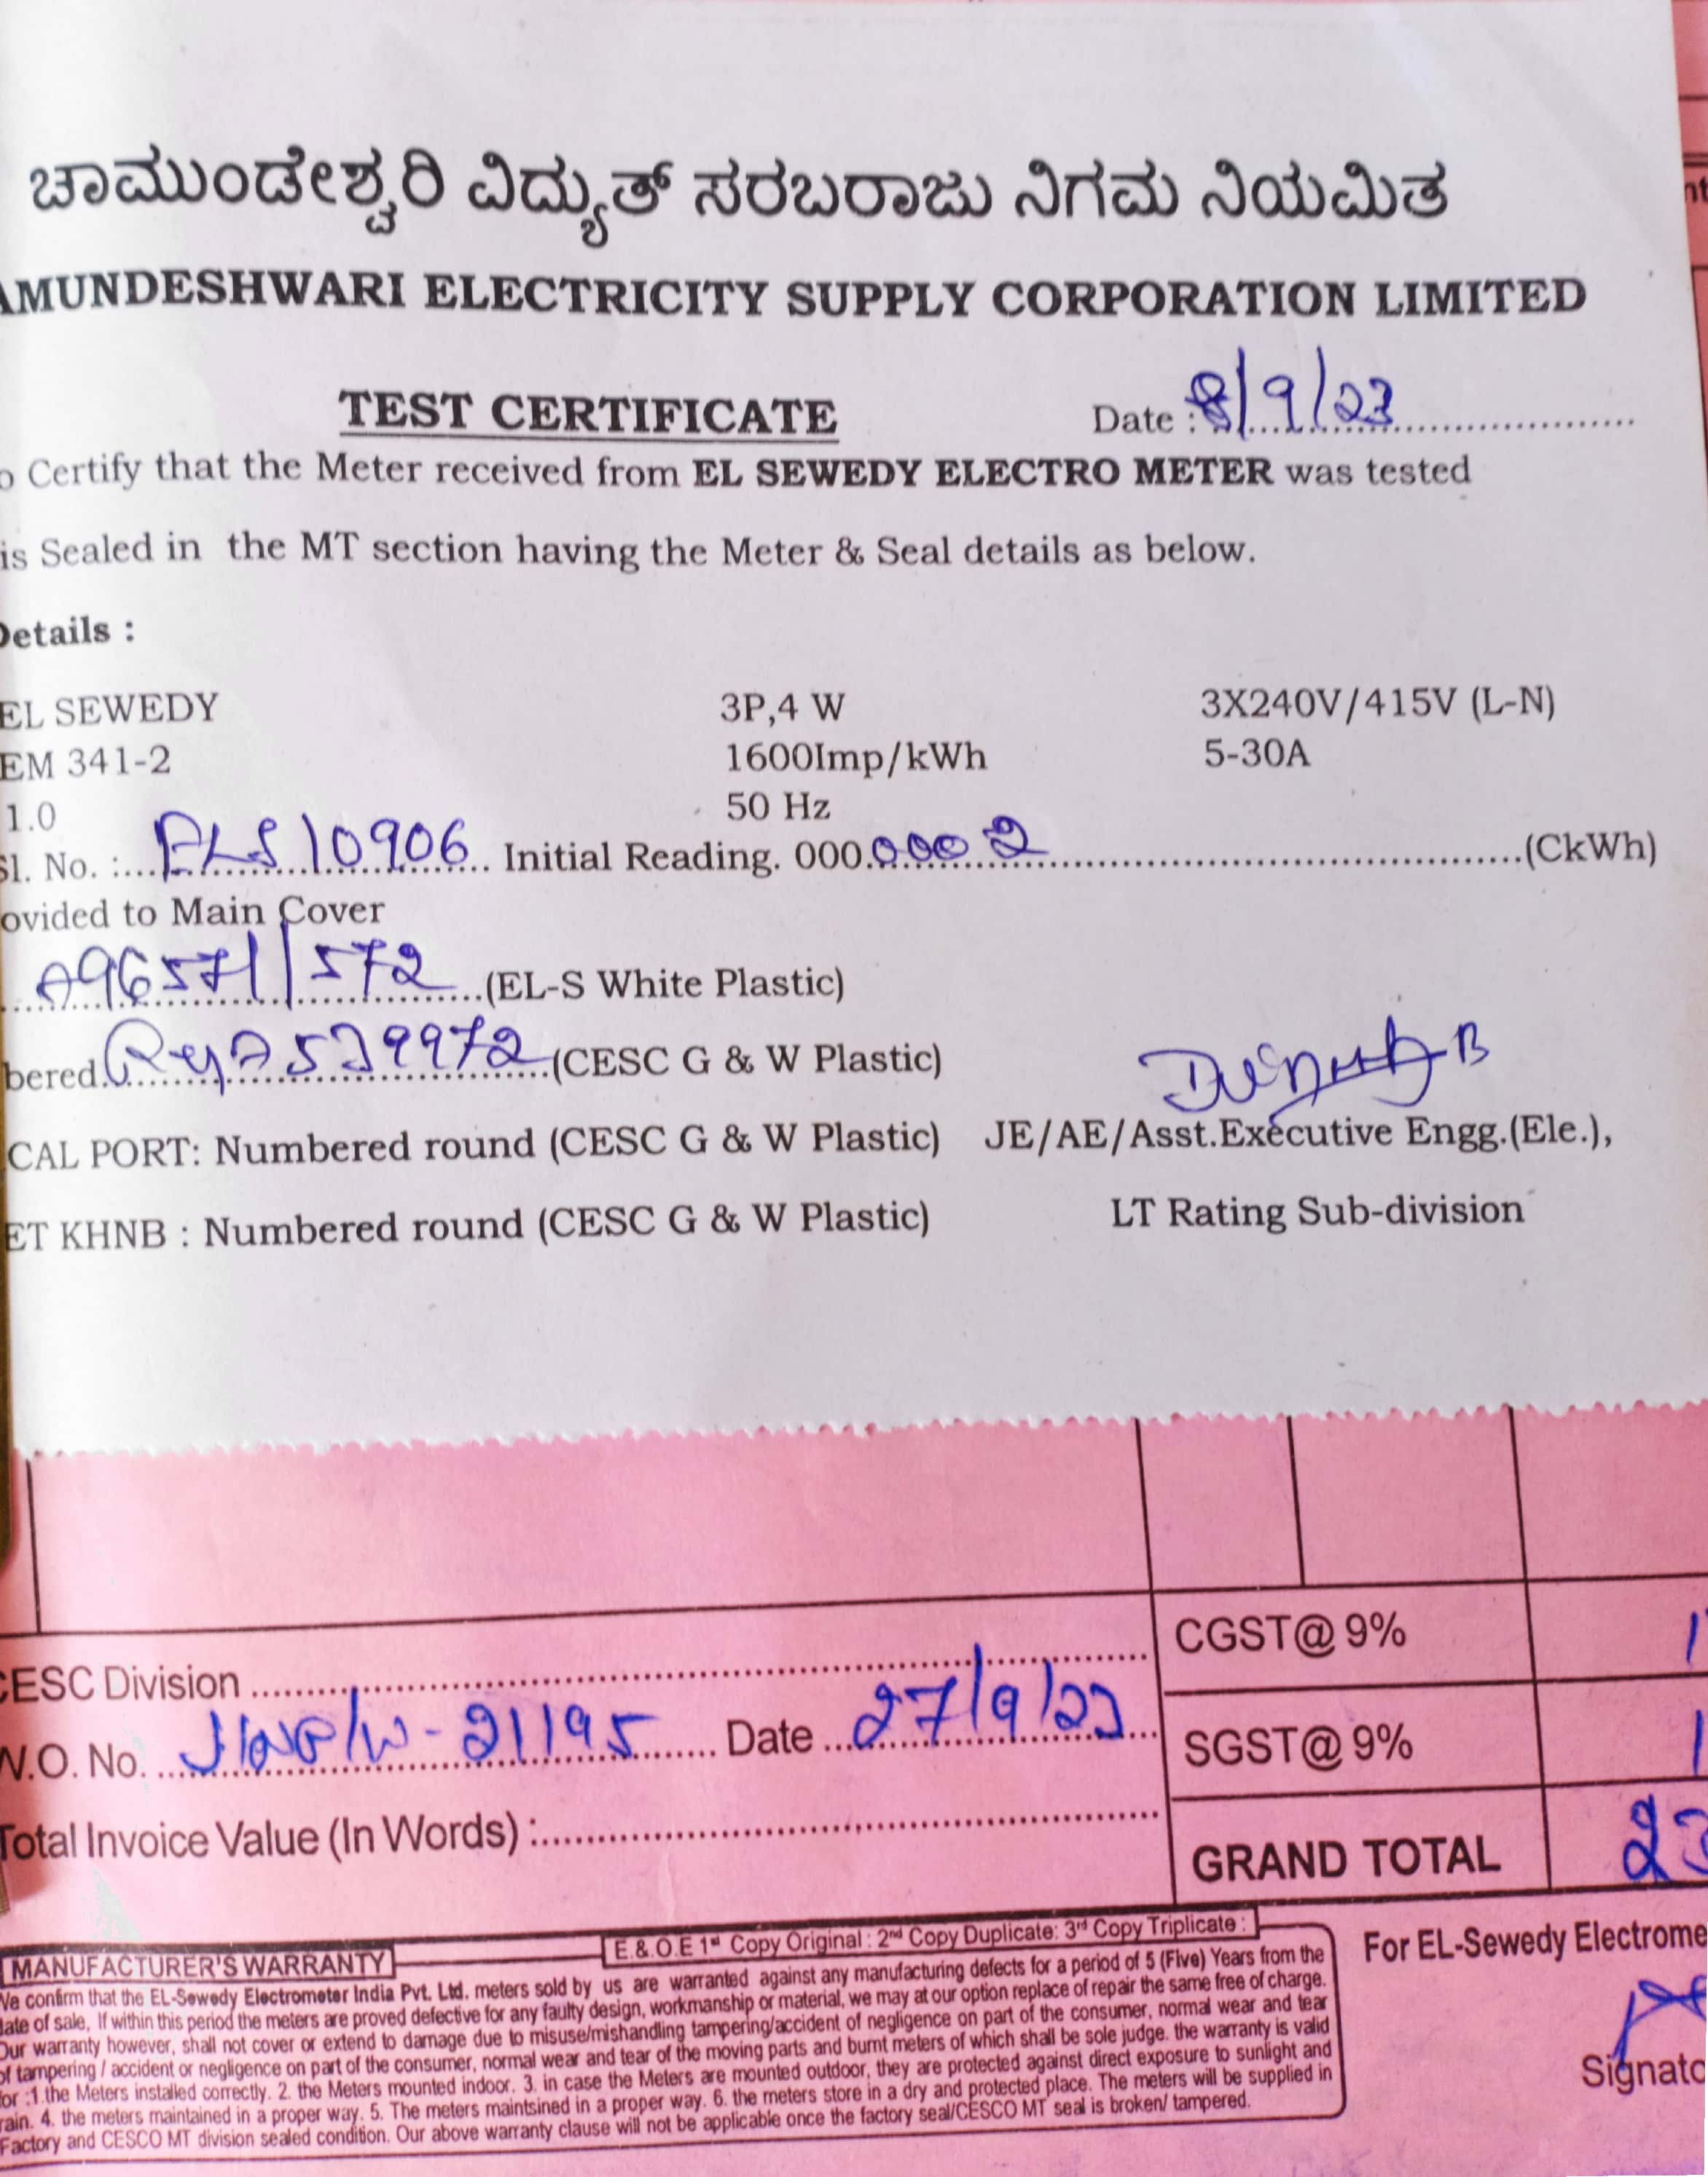 ಚಾಮುಂಡೇಶ್ವರಿ ವಿದ್ಯುತ್ ಸರಬರಾಜು ನಿಗಮ ನಿಯಮಿತ
AMUNDESHWARI ELECTRICITY SUPPLY CORPORATION LIMITED
TEST CERTIFICATE Date : 8/9/23
o Certify that the Meter received from EL SEWEDY ELECTRO METER was tested
is Sealed in the MT section having the Meter & Seal details as below.
Details :
EL SEWEDY 3P,4 W 3X240V/415V (L-N)
EM 341-2 1600Imp/kWh 5-30A
1.0 50 Hz
Sl. No. :... ELS 10906 ... Initial Reading. 000.0002 ...(CkWh)
ovided to Main Cover
A96571/572 (EL-S White Plastic)
bered. (CESC G & W Plastic)
CAL PORT: Numbered round (CESC G & W Plastic) JE/AE/Asst.Executive Engg.(Ele.),
ET KHNB : Numbered round (CESC G & W Plastic) LT Rating Sub-division
CGST@ 9%
CESC Division
W.O. No. 21195 Date 27/9/23
SGST@ 9%
Total Invoice Value (In Words) :
GRAND TOTAL 23
E.&.O.E 1st Copy Original : 2nd Copy Duplicate: 3rd Copy Triplicate :
For EL-Sewedy Electrome
MANUFACTURER'S WARRANTY
We confirm that the EL-Sewedy Electrometer India Pvt. Ltd. meters sold by us are warranted against any manufacturing defects for a period of 5 (Five) Years from the
date of sale, If within this period the meters are proved defective for any faulty design, workmanship or material, we may at our option replace of repair the same free of charge.
Our warranty however, shall not cover or extend to damage due to misuse/mishandling tampering/accident of negligence on part of the consumer, normal wear and tear
of tampering / accident or negligence on part of the consumer, normal wear and tear of the moving parts and burnt meters of which shall be sole judge. the warranty is valid
for :1.the Meters installed correctly. 2. the Meters mounted indoor. 3. in case the Meters are mounted outdoor, they are protected against direct exposure to sunlight and
rain. 4. the meters maintained in a proper way. 5. The meters maintsined in a proper way. 6. the meters store in a dry and protected place. The meters will be supplied in
Factory and CESCO MT division sealed condition. Our above warranty clause will not be applicable once the factory seal/CESCO MT seal is broken/ tampered.
Signato